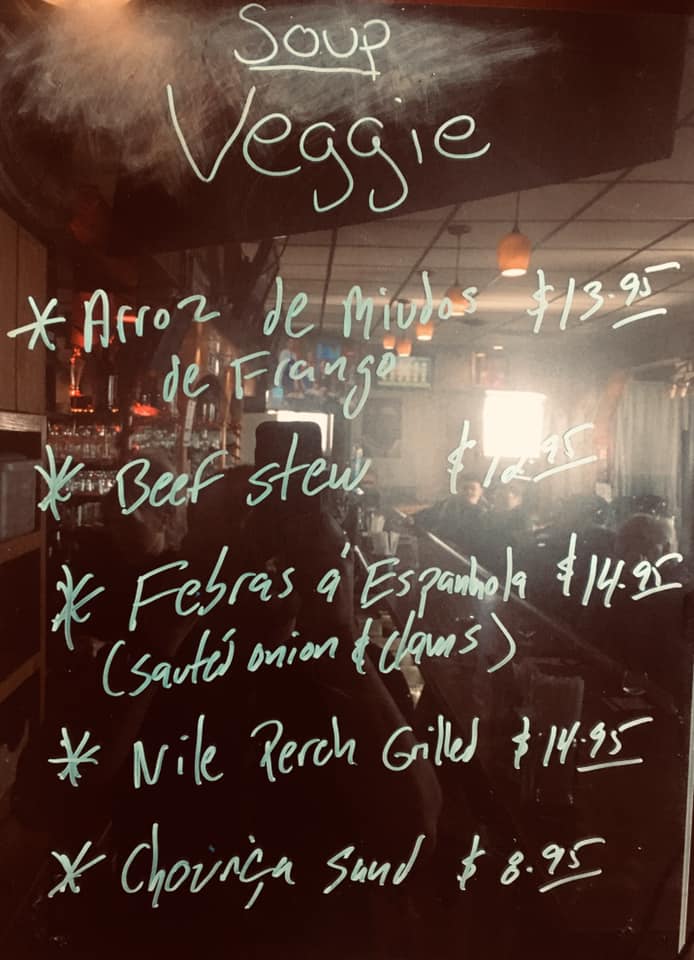 Soup
Veggie
* Arroz de Miudos $13.95
de Frango
* Beef stew $12.95
* Febras á Espanhola $14.95
(sauté'd onion & clams)
* Nile Perch Grilled $14.95
* Chouriça Sand $8.95